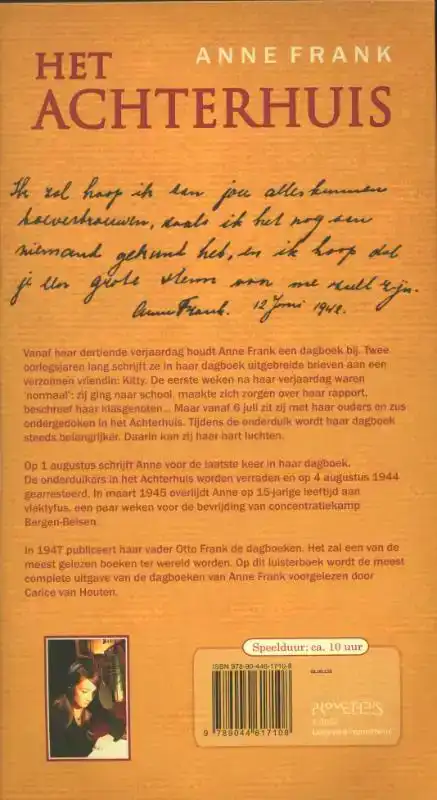 ANNE FRANK
HET
ACHTERHUIS
Ik zal hoop ik aan jou alles kunnen
toevertrouwen, zoals ik het nog aan
niemand gekund heb, en ik hoop dat
je een grote steun voor me zult zijn.
Anne Frank. 12 Juni 1942.
Vanaf haar dertiende verjaardag houdt Anne Frank een dagboek bij. Twee
oorlogsjaren lang schrijft ze in haar dagboek uitgebreide brieven aan een
verzonnen vriendin: Kitty. De eerste weken na haar verjaardag waren
'normaal': zij ging naar school, maakte zich zorgen over haar rapport,
beschreef haar klasgenoten... Maar vanaf 6 juli zit zij met haar ouders en zus
ondergedoken in het Achterhuis. Tijdens de onderduik wordt haar dagboek
steeds belangrijker. Daarin kan zij haar hart luchten.
Op 1 augustus schrijft Anne voor de laatste keer in haar dagboek.
De onderduikers in het Achterhuis worden verraden en op 4 augustus 1944
gearresteerd. In maart 1945 overlijdt Anne op 15-jarige leeftijd aan
vlektyfus, een paar weken voor de bevrijding van concentratiekamp
Bergen-Belsen.
In 1947 publiceert haar vader Otto Frank de dagboeken. Het zal een van de
meest gelezen boeken ter wereld worden. Op dit luisterboek wordt de meest
complete uitgave van de dagboeken van Anne Frank voorgelezen door
Carice van Houten.
Speelduur: ca. 10 uur
ISBN 978-90-446-1710-8
9 789044 617108